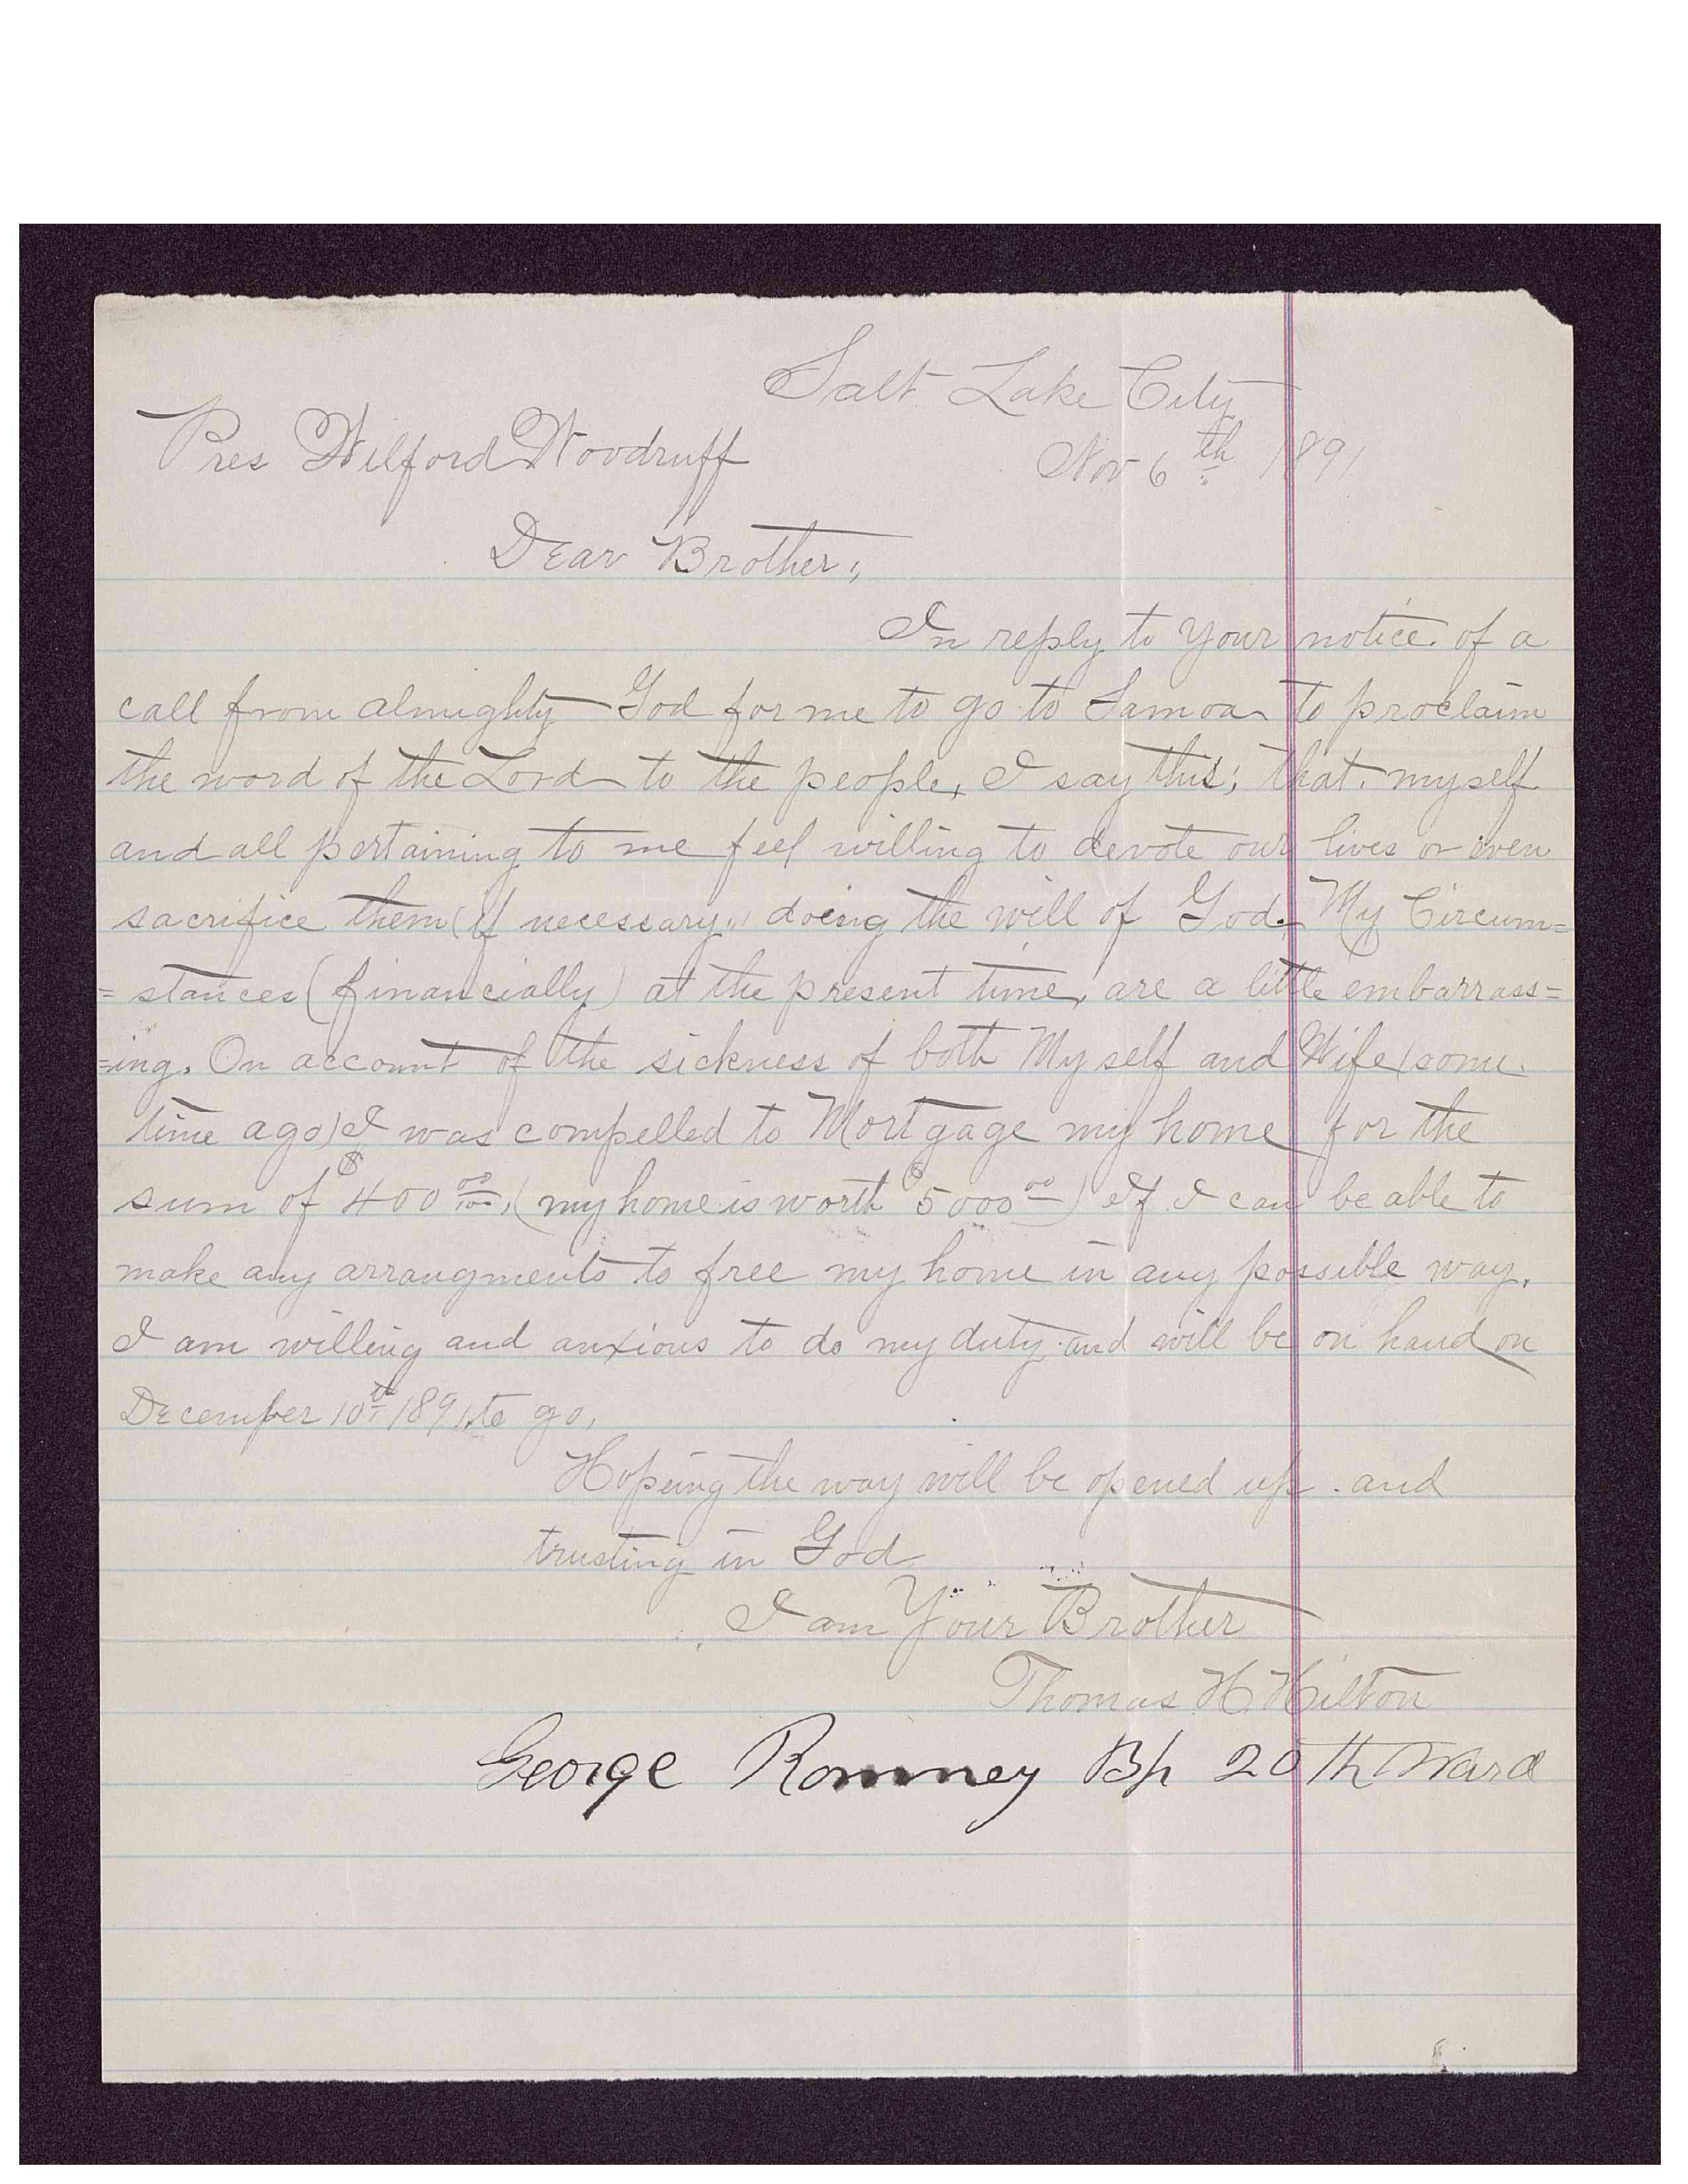 Salt Lake City
Pres Wilford Woodruff Nov 6th 1891
Dear Brother;
In reply to your notice of a
call from almighty God for me to go to Samoa to proclaim
the word of the Lord to the people, I say this; that myself
and all pertaining to me feel willing to devote our lives or even
sacrifice them (if necessary,) doing the will of God. My Circum=
=stances (financially) at the present time, are a little embarrass=
=ing. On account of the sickness of both Myself and Wife (some
time ago) I was compelled to Mortgage my home for the
sum of $400 00/100, (my home is worth $5000 00) If I can be able to
make any arrangments to free my home in any possible way.
I am willing and anxious to do my duty and will be on hand on
December 10th 1891, to go.
Hopeing the way will be opened up. and
trusting in God
I am Your Brother
Thomas H. Hilton
George Romney Bp 20th Ward